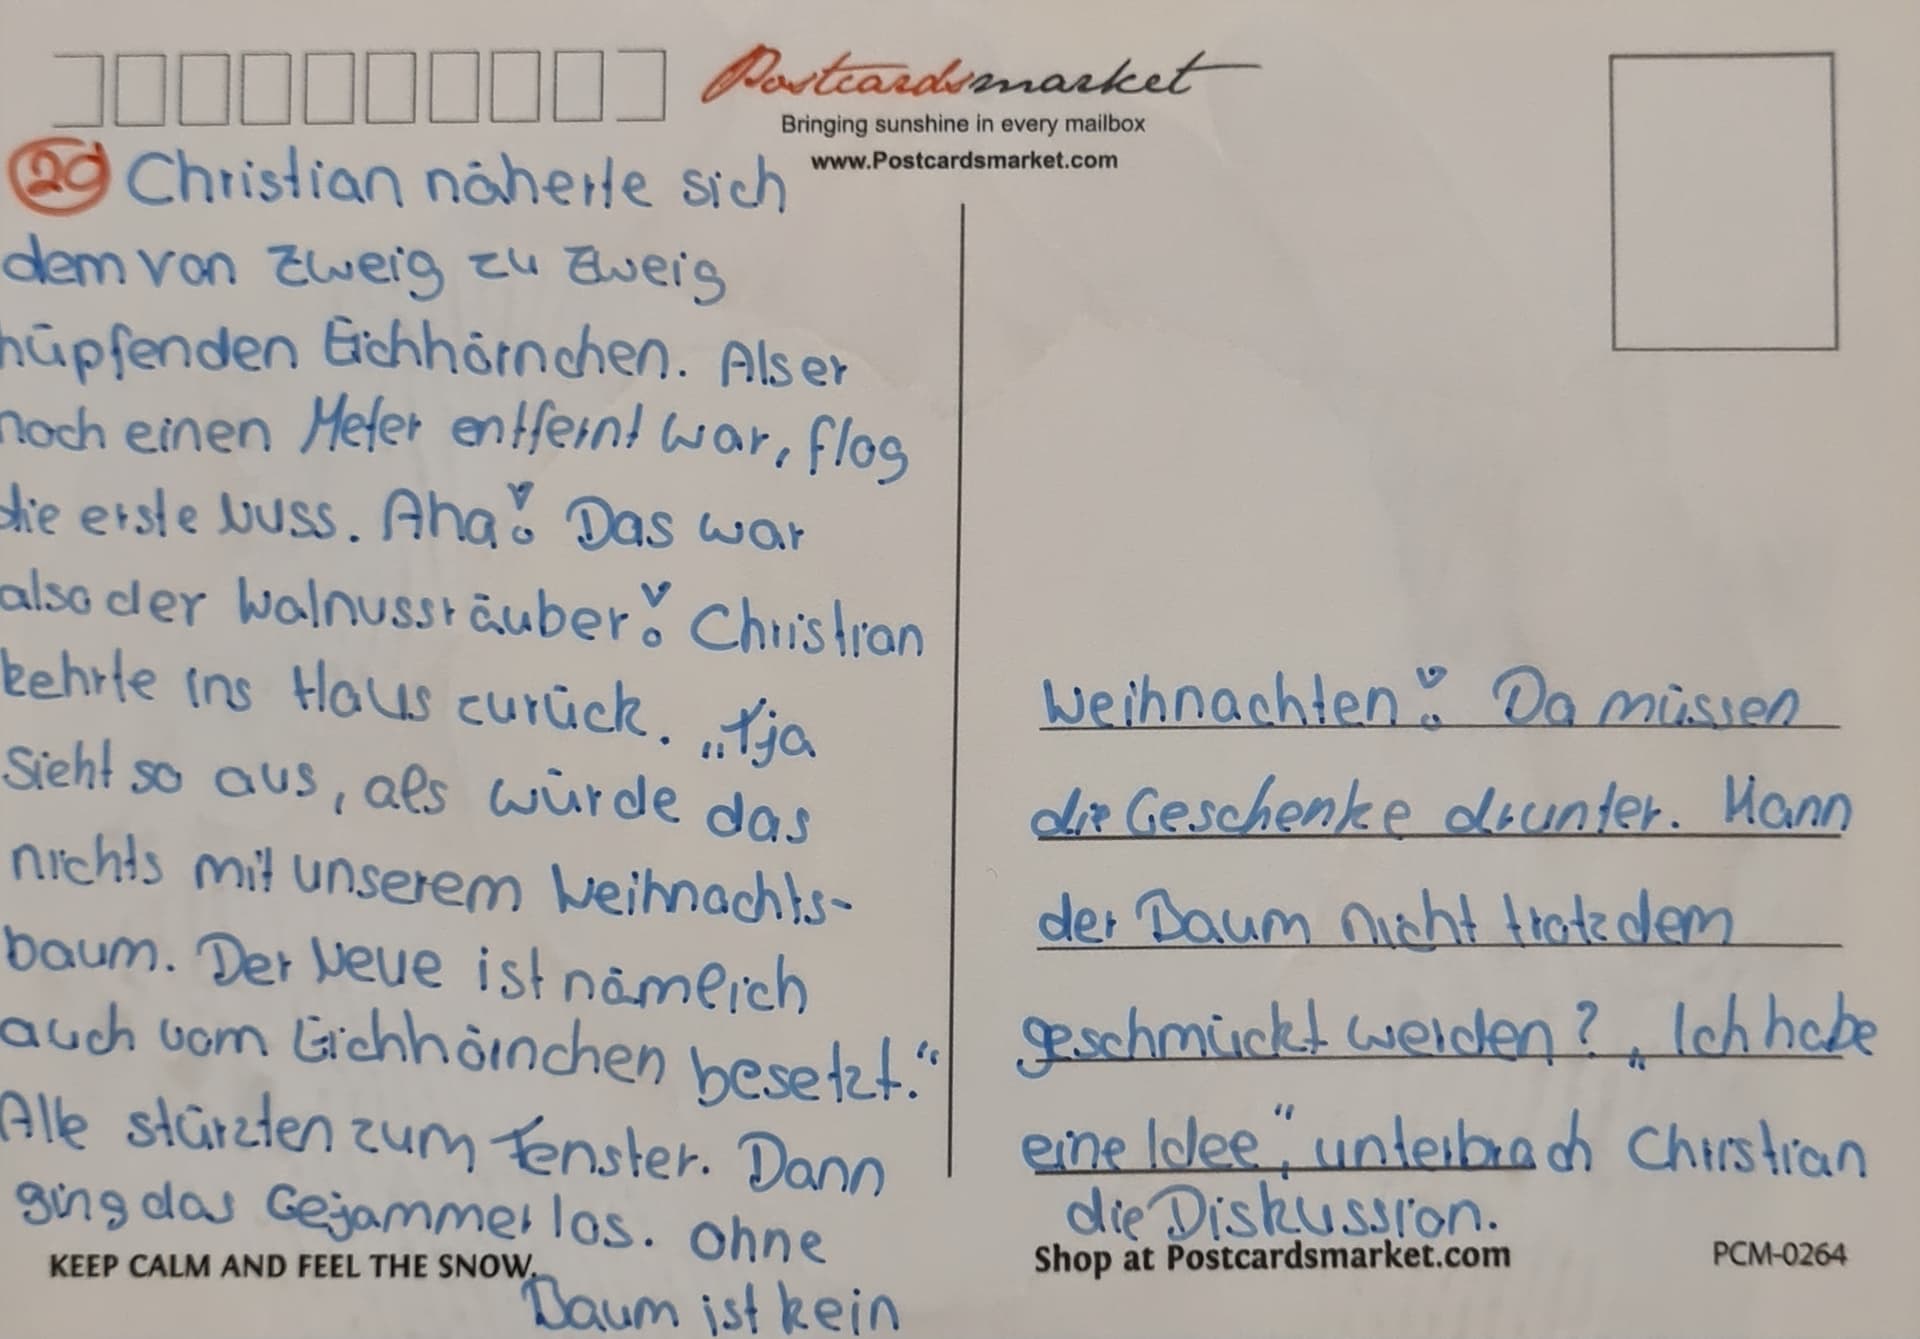 Postcardsmarket
Bringing sunshine in every mailbox
www.Postcardsmarket.com
20 Christian näherte sich
dem von Zweig zu Zweig
hüpfenden Eichhörnchen. Als er
noch einen Meter entfernt war, flog
die erste Nuss. Aha! Das war
also der Walnussräuber! Christian
kehrte ins Haus zurück. „Tja
Sieht so aus, als würde das
nichts mit unserem Weihnachts-
baum. Der Neue ist nämlich
auch vom Eichhörnchen besetzt.“
Alle stürzten zum Fenster. Dann
ging das Gejammer los. Ohne
Baum ist kein
Weihnachten! Da müssen
die Geschenke drunter. Kann
der Baum nicht trotzdem
geschmückt werden? „Ich habe
eine Idee“, unterbrach Christian
die Diskussion.
KEEP CALM AND FEEL THE SNOW.
Shop at Postcardsmarket.com
PCM-0264